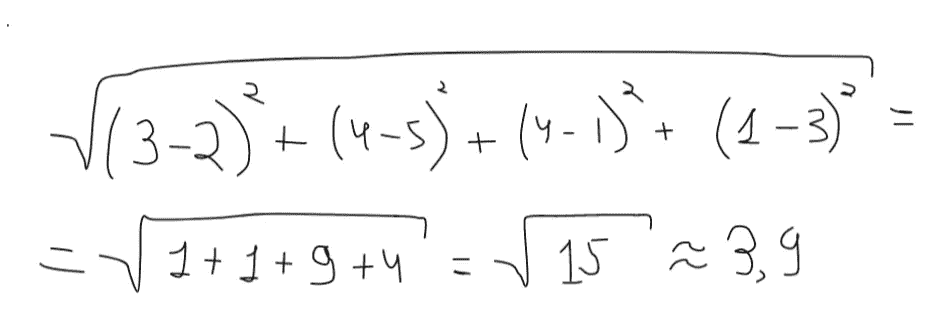 √((3-2)² + (4-5)² + (4-1)² + (1-3)²) =
= √(1+1+9+4) = √15 ≈ 3,9